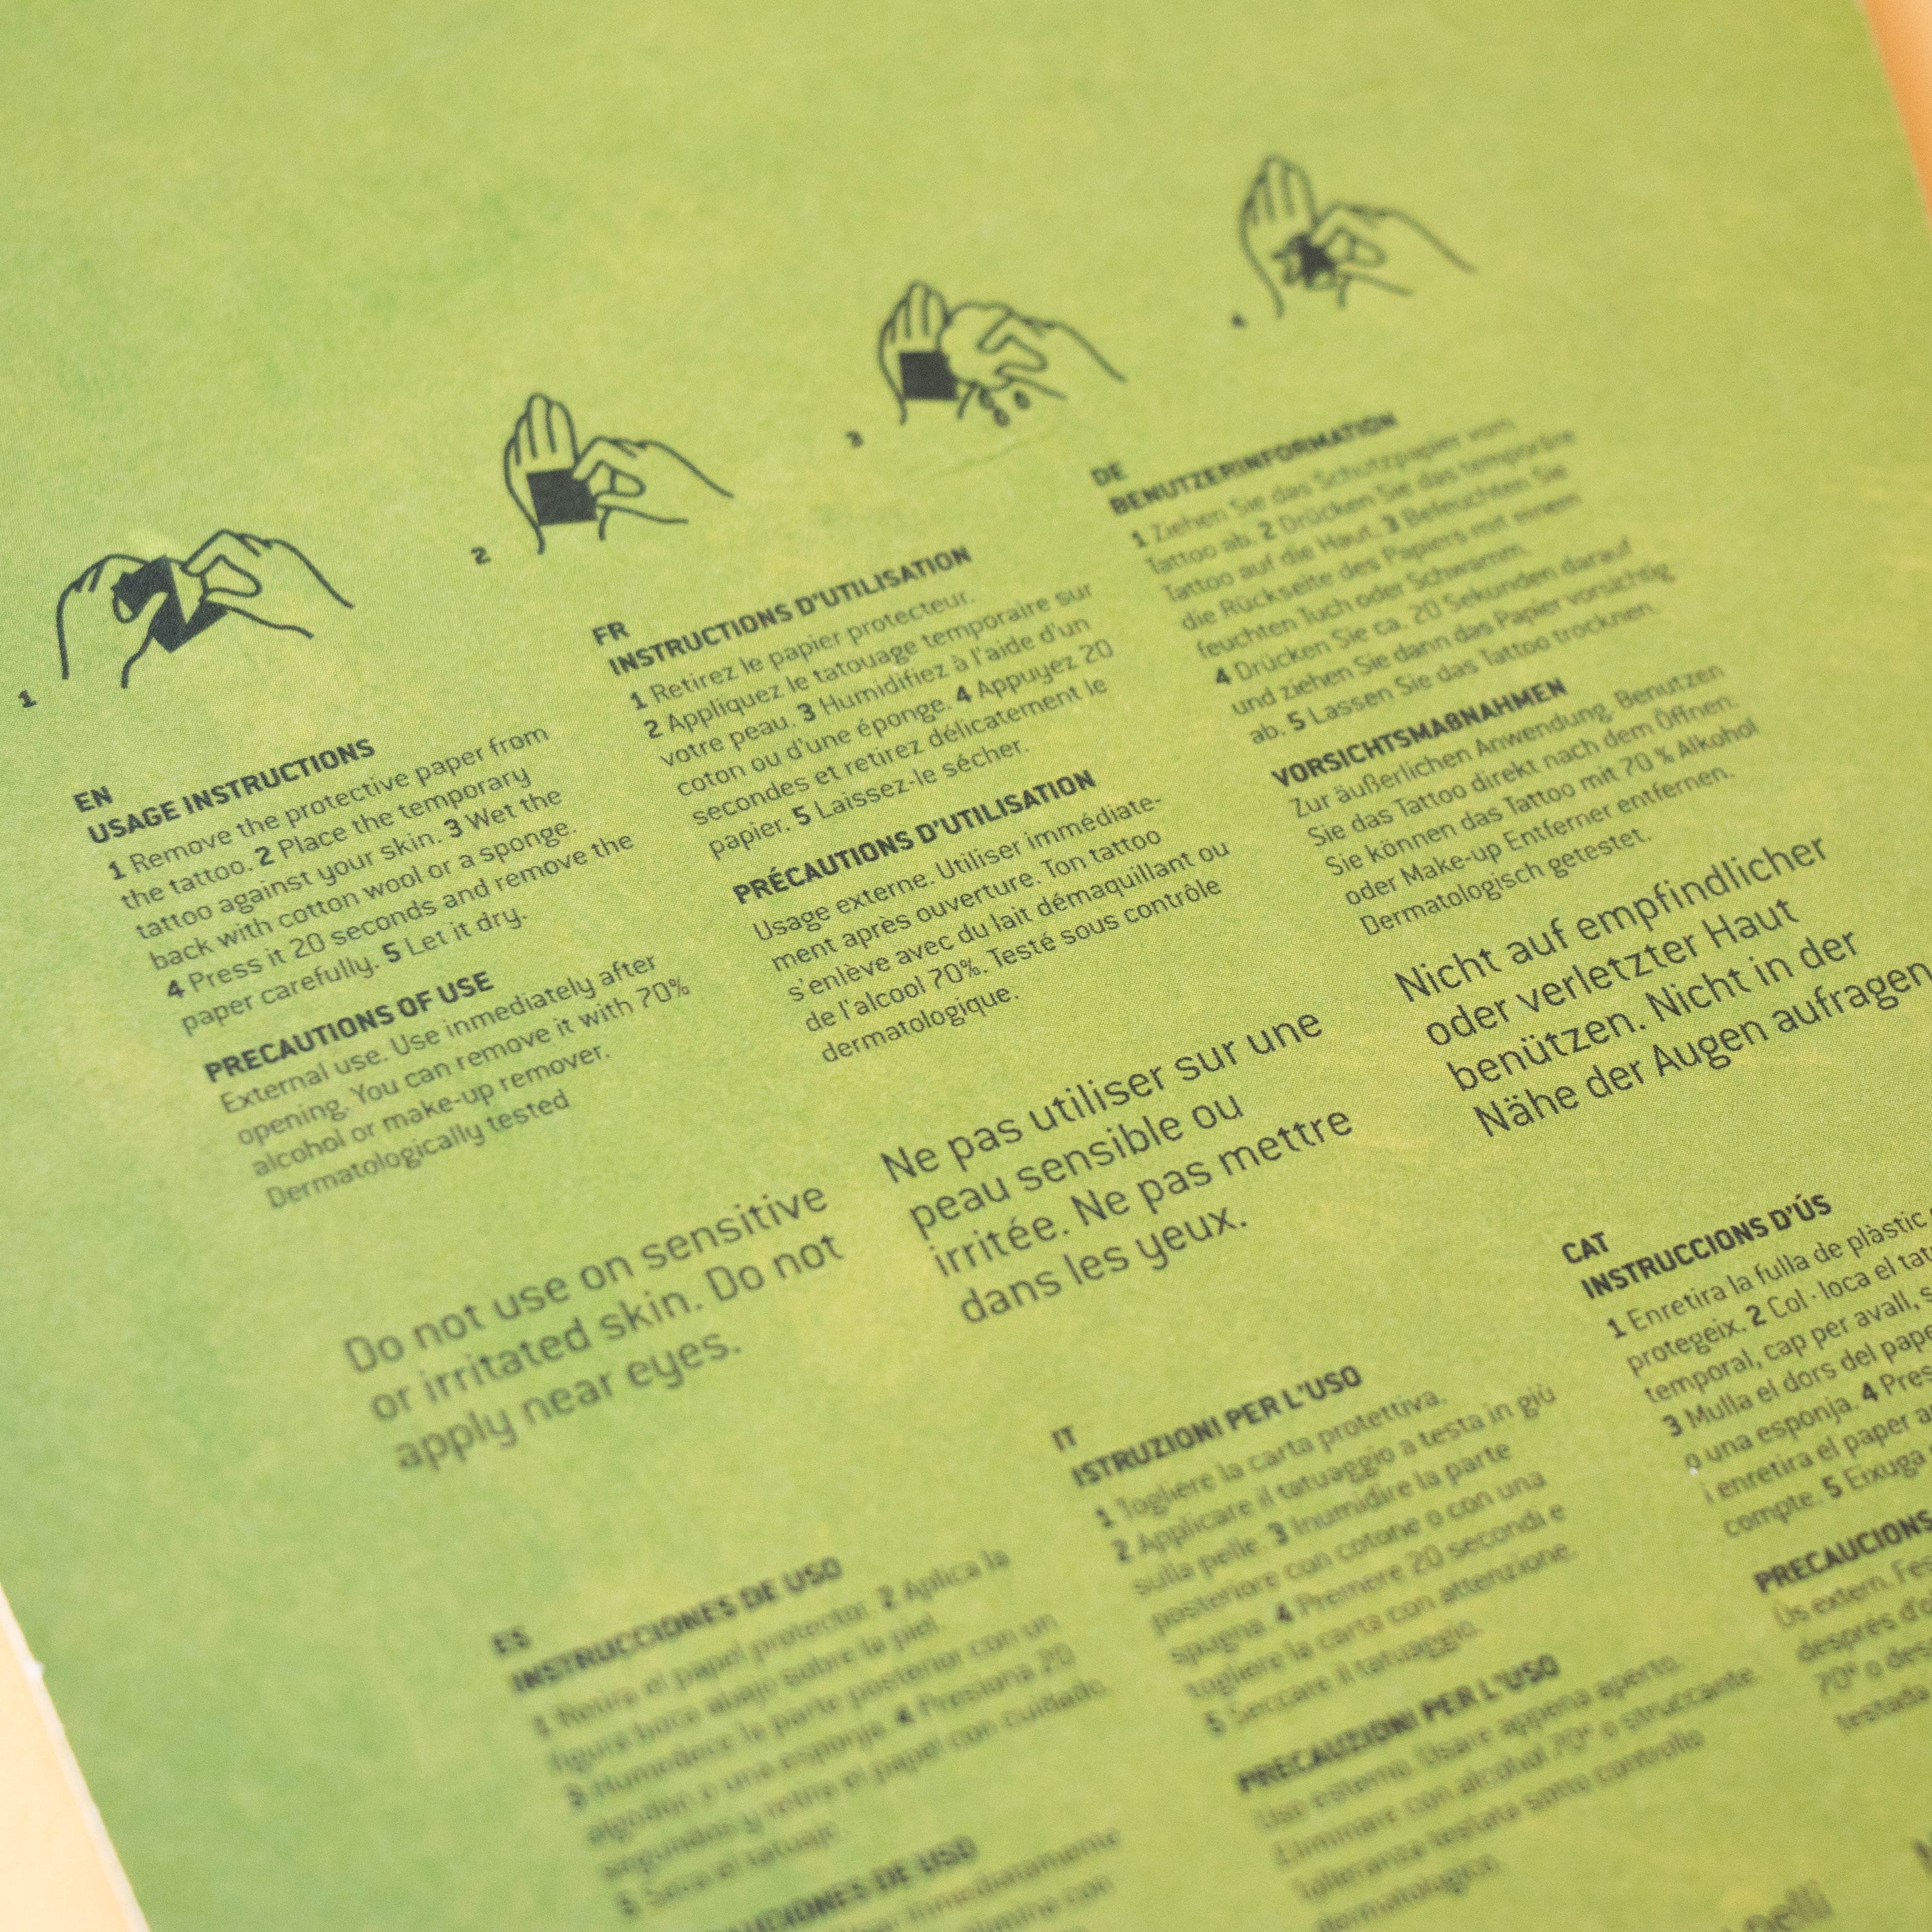 1
2
3
4
EN
USAGE INSTRUCTIONS
1 Remove the protective paper from
the tattoo. 2 Place the temporary
tattoo against your skin. 3 Wet the
back with cotton wool or a sponge.
4 Press it 20 seconds and remove the
paper carefully. 5 Let it dry.
PRECAUTIONS OF USE
External use. Use inmediately after
opening. You can remove it with 70%
alcohol or make-up remover.
Dermatologically tested
Do not use on sensitive
or irritated skin. Do not
apply near eyes.
FR
INSTRUCTIONS D'UTILISATION
1 Retirez le papier protecteur.
2 Appliquez le tatouage temporaire sur
votre peau. 3 Humidifiez à l'aide d'un
coton ou d'une éponge. 4 Appuyez 20
secondes et retirez délicatement le
papier. 5 Laissez-le sécher.
PRÉCAUTIONS D'UTILISATION
Usage externe. Utiliser immédiate-
ment après ouverture. Ton tattoo
s'enlève avec du lait démaquillant ou
de l'alcool 70%. Testé sous contrôle
dermatologique.
Ne pas utiliser sur une
peau sensible ou
irritée. Ne pas mettre
dans les yeux.
DE
BENUTZERINFORMATION
1 Ziehen Sie das Schutzpapier vom
Tattoo ab. 2 Drücken Sie das temporäre
Tattoo auf die Haut. 3 Befeuchten Sie
die Rückseite des Papiers mit einem
feuchten Tuch oder Schwamm.
4 Drücken Sie ca. 20 Sekunden darauf
und ziehen Sie dann das Papier vorsichtig
ab. 5 Lassen Sie das Tattoo trocknen.
VORSICHTSMAßNAHMEN
Zur äußerlichen Anwendung. Benutzen
Sie das Tattoo direkt nach dem Öffnen.
Sie können das Tattoo mit 70 % Alkohol
oder Make-up Entferner entfernen.
Dermatologisch getestet.
Nicht auf empfindlicher
oder verletzter Haut
benützen. Nicht in der
Nähe der Augen aufragen
ES
INSTRUCCIONES DE USO
1 Retira el papel protector. 2 Aplica la
figura boca abajo sobre la piel.
3 Humedece la parte posterior con un
algodón o una esponja. 4 Presiona 20
segundos y retira el papel con cuidado.
5 Seca el tatuaje.
DE USO
inmediatamente
con
IT
ISTRUZIONI PER L'USO
1 Togliere la carta protettiva.
2 Applicare il tatuaggio a testa in giù
sulla pelle. 3 Inumidire la parte
posteriore con cotone o con una
spugna. 4 Premere 20 secondi e
togliere la carta con attenzione.
5 Seccare il tatuaggio.
PRECAUZIONI PER L'USO
Uso esterno. Usare appena aperto.
Eliminare con alcohol 70° o struccante.
Tolleranza testata sotto controllo
dermatologico.
CAT
INSTRUCCIONS D'ÚS
1 Enretira la fulla de plàstic
protegeix. 2 Col·loca el
temporal, cap per avall,
3 Mulla el dors del
o una esponja. 4
i enretira el paper
compte. 5 Eixuga
PRECAUCIONS
Ús extern.
després
70° o
testada